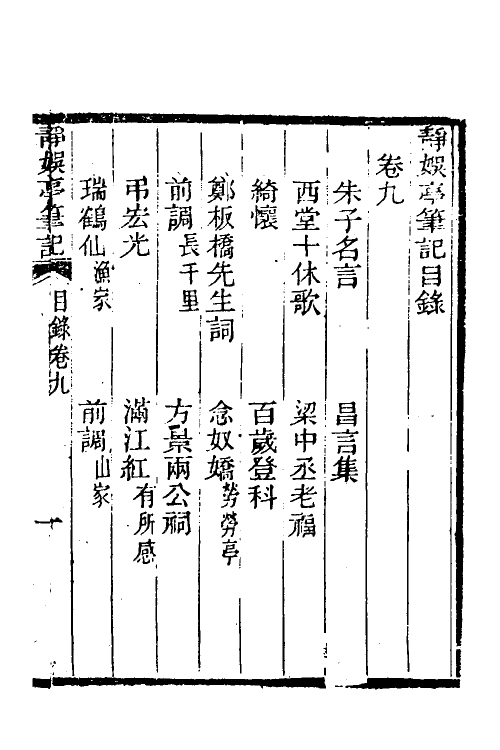 靜娛亭筆記目錄
卷九
朱子名言　昌言集
西堂十休歌　梁中丞老福
綺懷　百歲登科
鄭板橋先生詞　念奴嬌勞勞亭
前調長千里　方景兩公祠
弔宏光　滿江紅有所感
瑞鶴仙漁家　前調山家
靜娛亭筆記　目錄卷九　一